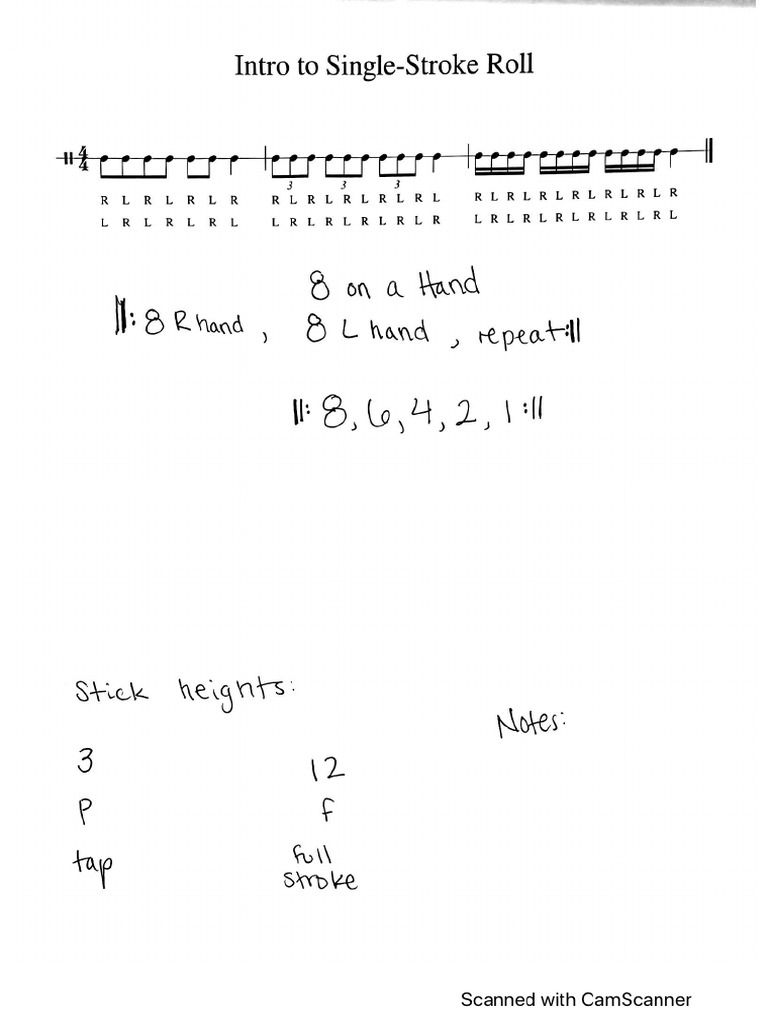 Intro to Single-Stroke Roll
4
4
3 3 3
R L R L R L R R L R L R L R L R L R L R L R L R L R L R L R L R
L R L R L R L L R L R L R L R L R L R L R L R L R L R L R L R L
8 on a Hand
8 R hand, 8 L hand, repeat
8, 6, 4, 2, 1
Stick heights:
Notes:
3 12
P f
tap full
stroke
Scanned with CamScanner